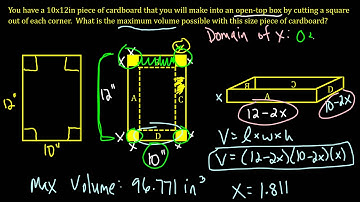 You have a 10x12in piece of cardboard that you will make into an open-top box by cutting a square
out of each corner. What is the maximum volume possible with this size piece of cardboard?
Domain of x: 0
12"
10"
x
x
x
x
x
x
x
x
12"
A
B
C
D
10"
x
B
C
A
D
12-2x
10-2x
V = l x w x h
V = (12-2x)(10-2x)(x)
Max Volume: 96.771 in³
X = 1.811